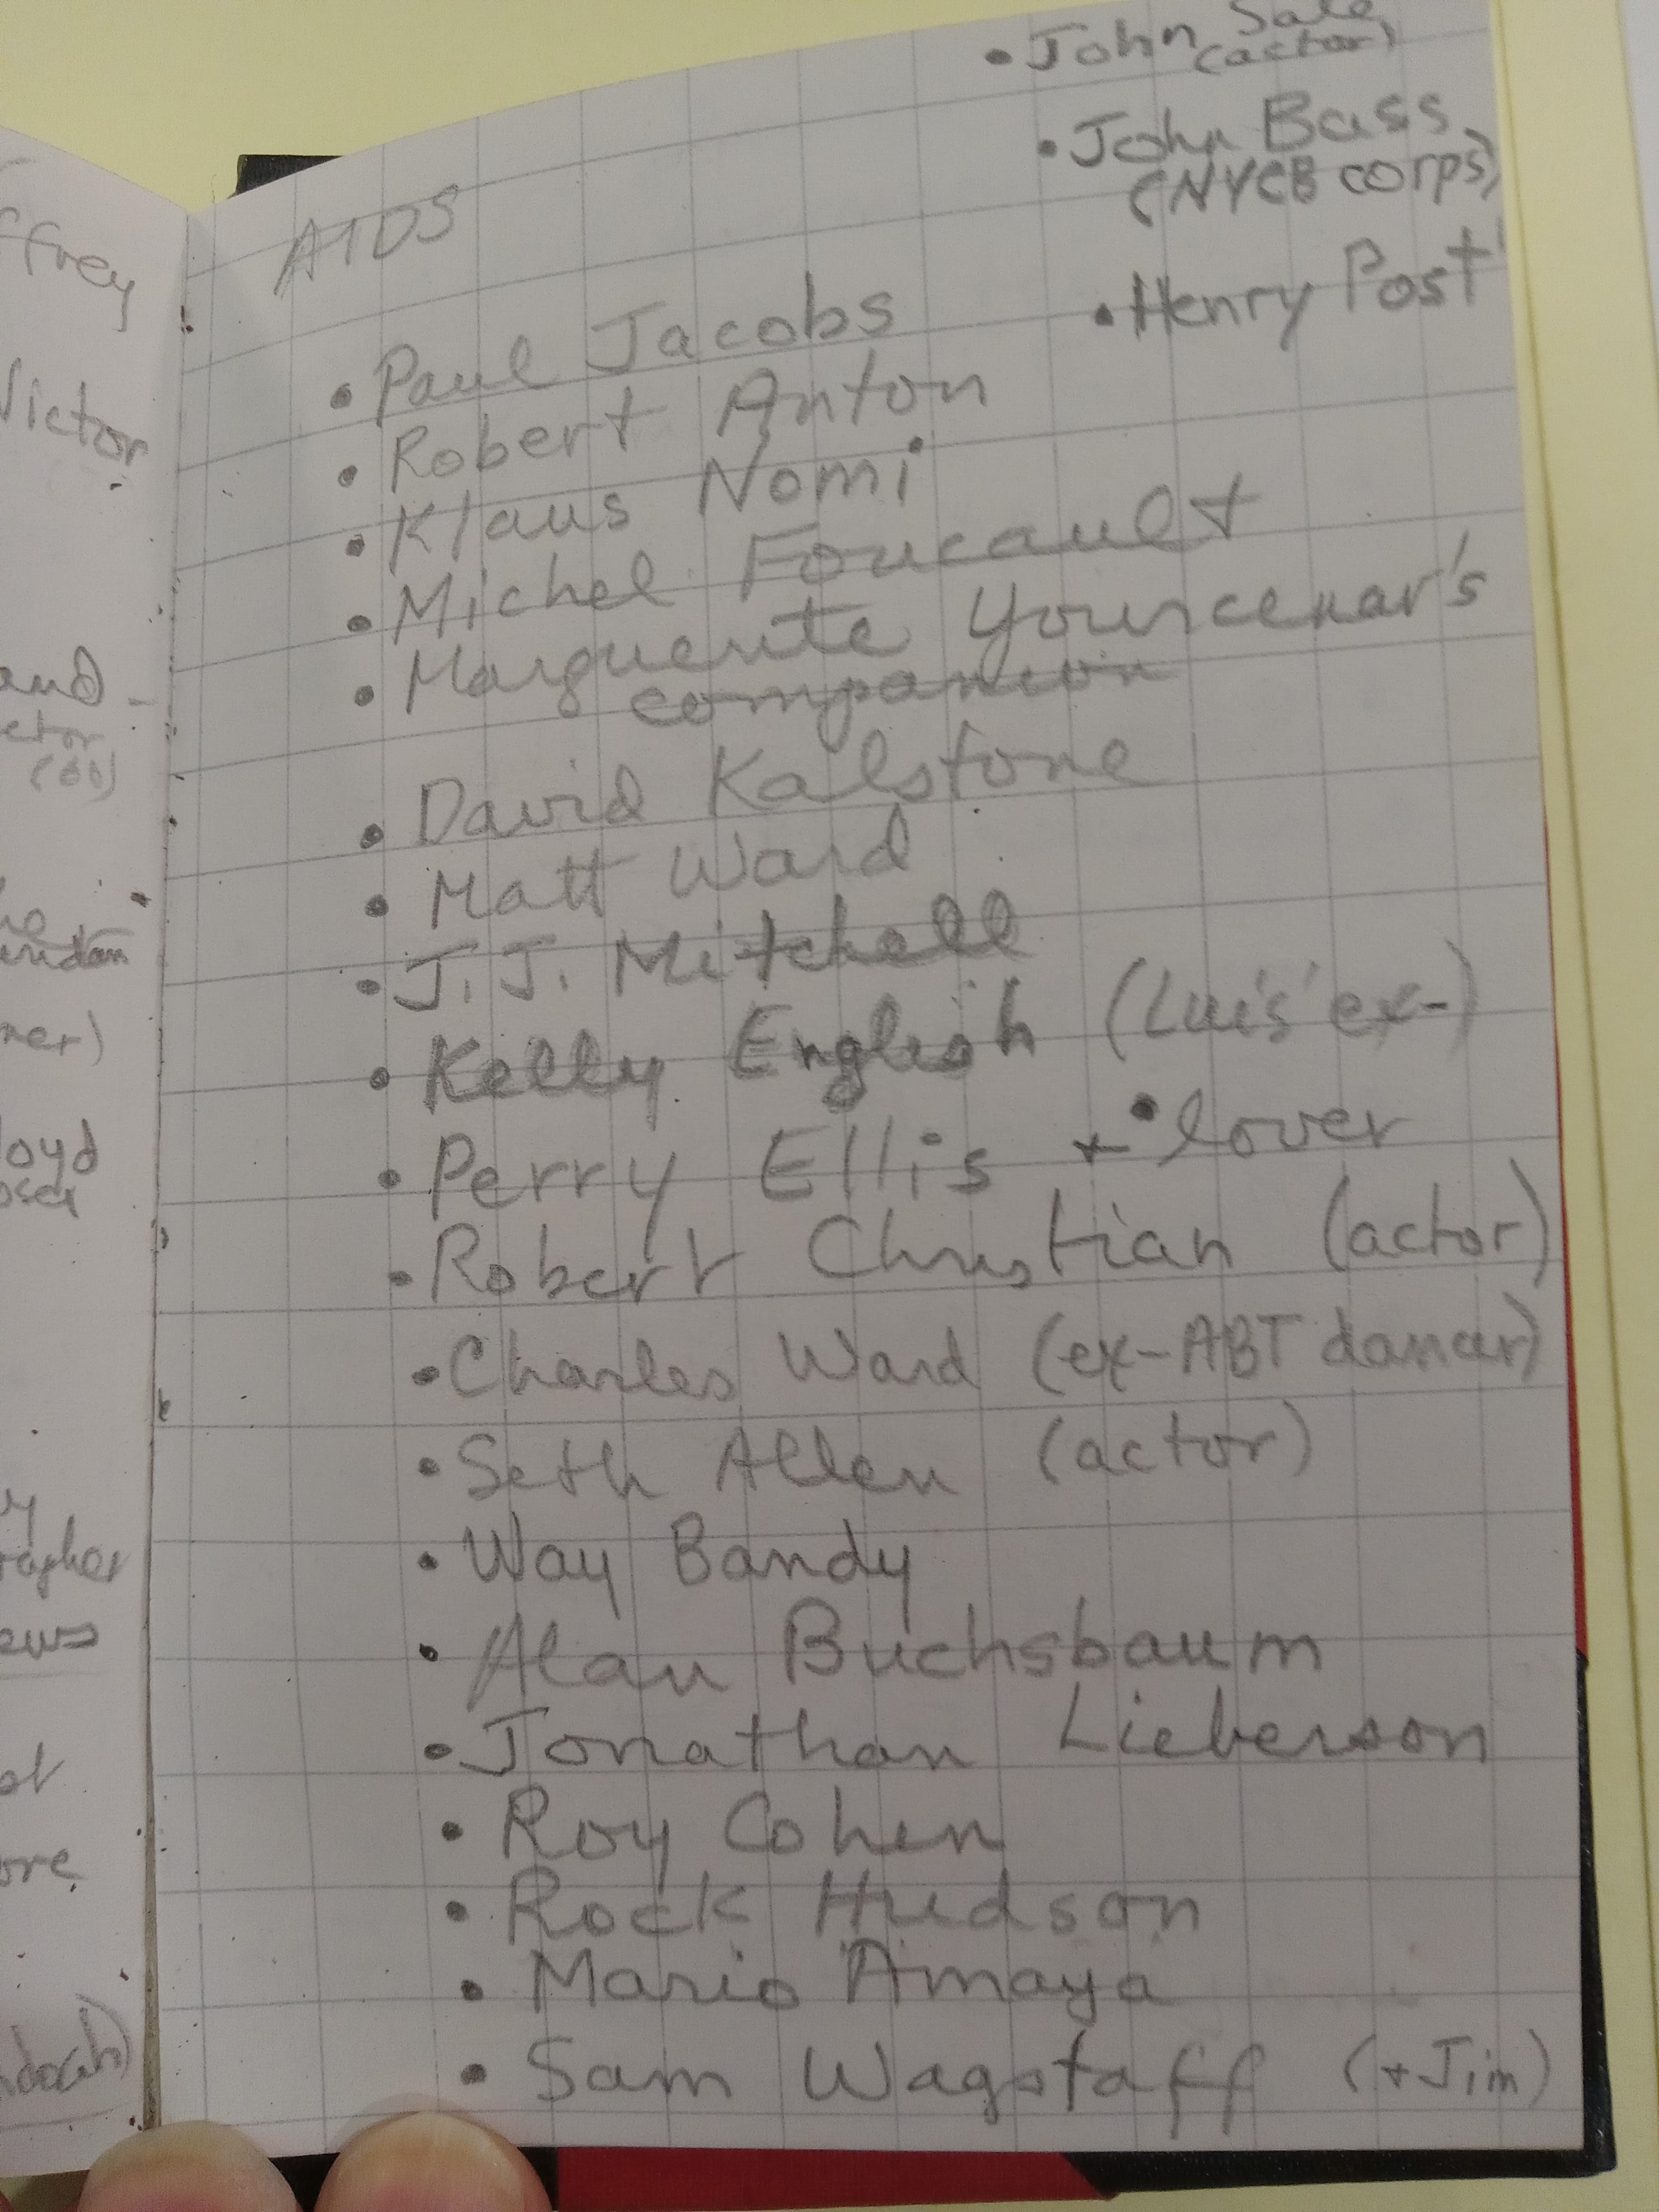 ffrey
Victor
and
etor
mer)
loyd
ews
ore
• John Sale
(actor)
• John Bass
(NYCB corps)
• Henry Post
AIDS
• Paul Jacobs
• Robert Anton
• Klaus Nomi
• Michel Foucault
• Marguerite Yourcenar's
companion
• David Kalstone
• Matt Ward
• J. J. Mitchell
• Kelly English (Luis' ex-)
• Perry Ellis + • lover
• Robert Christian (actor)
• Charles Ward (ex-ABT dancer)
• Seth Allen (actor)
• Way Bandy
• Alan Buchsbaum
• Jonathan Lieberson
• Roy Cohen
• Rock Hudson
• Mario Amaya
• Sam Wagstaff (+Jim)